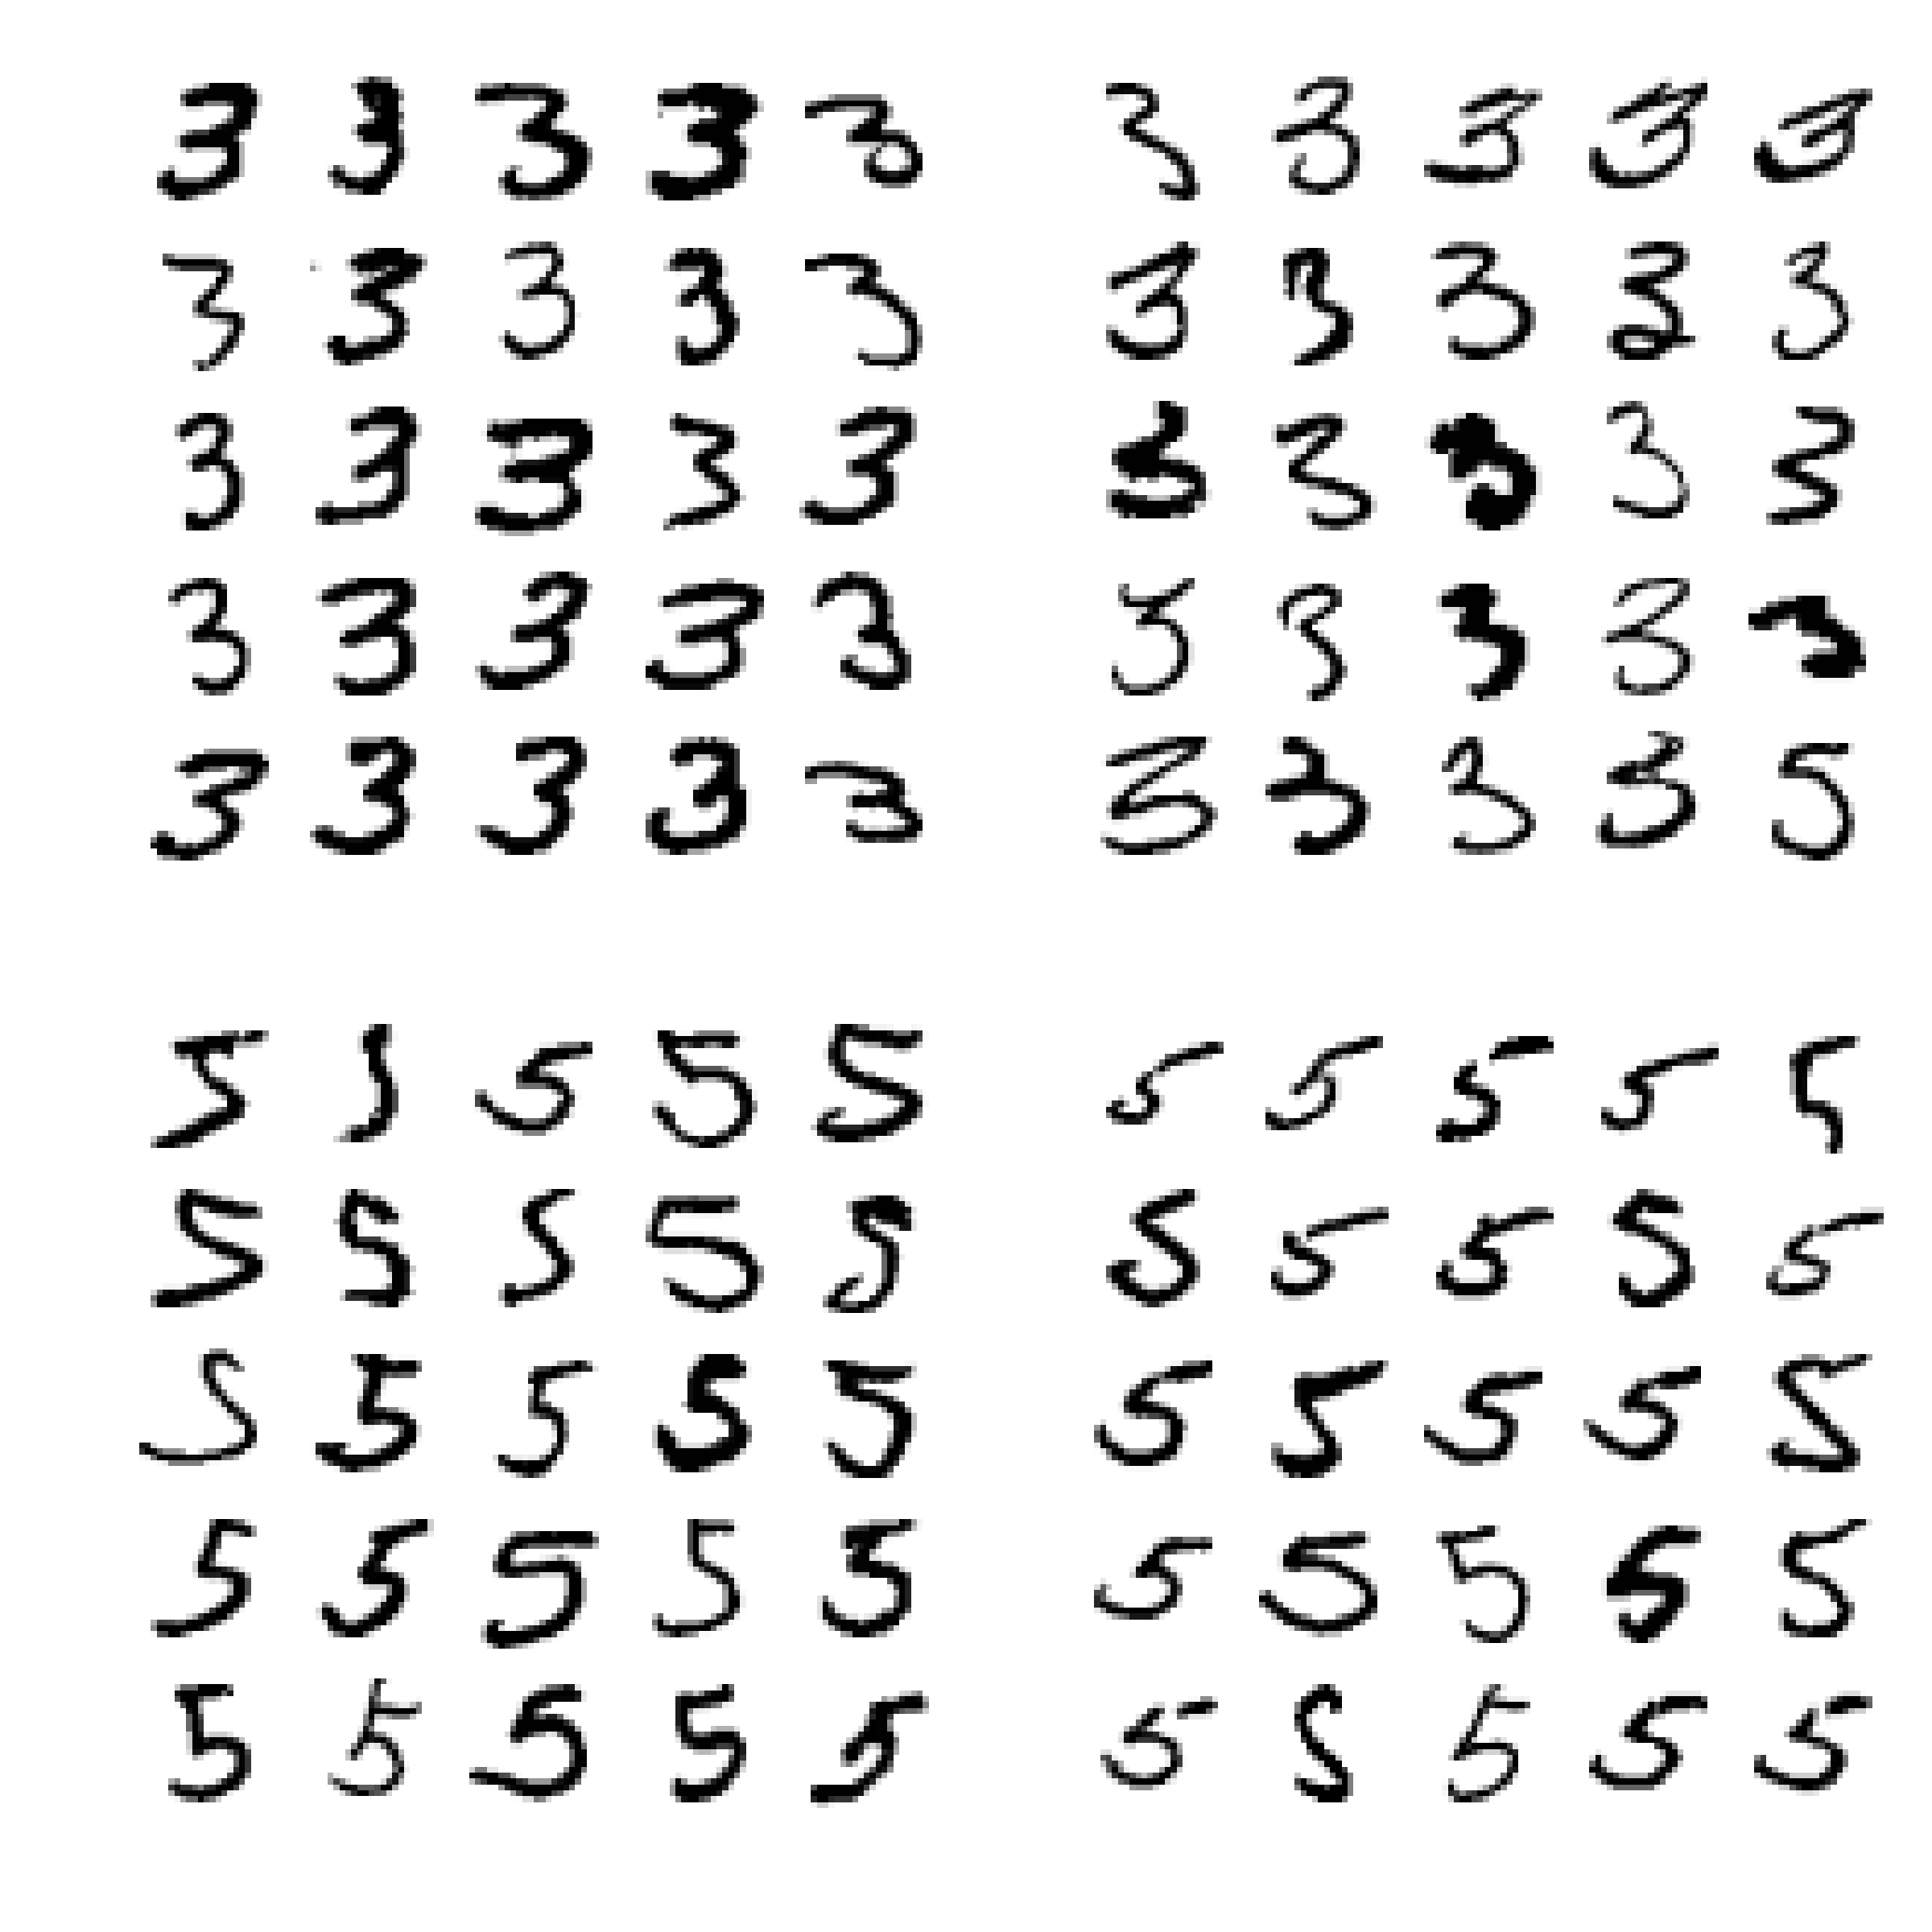 3 3 3 3 3 3 3 3 3 3
3 3 3 3 3 3 3 3 3 3
3 3 3 3 3 3 3 3 3 3
3 3 3 3 3 3 3 3 3 3
3 3 3 3 3 3 3 3 3 5
5 5 5 5 5 5 5 5 5 5
5 5 5 5 5 5 5 5 5 5
5 5 5 5 5 5 5 5 5 5
5 5 5 5 5 5 5 5 5 5
5 5 5 5 5 5 5 5 5 5